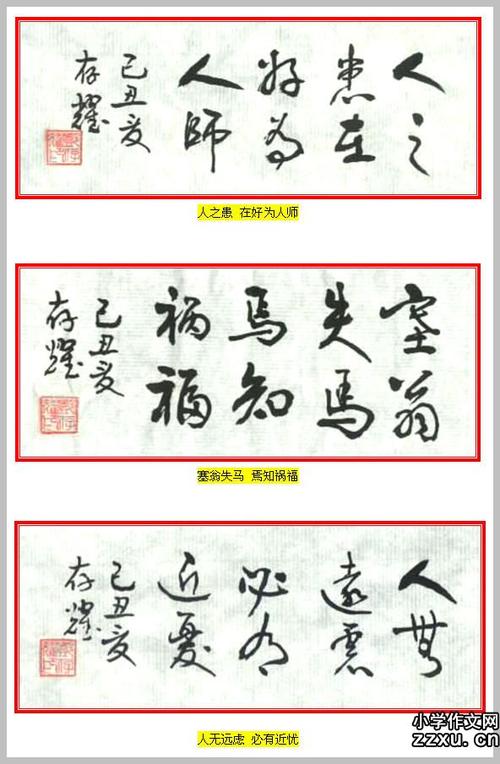 人之
患在
好為
人師
己丑夏
存耀
人之患 在好为人师
塞翁
失馬
焉知
禍福
己丑夏
存耀
塞翁失马 焉知祸福
人無
遠慮
必有
近憂
己丑夏
存耀
人无远虑 必有近忧
小学作文网
zzxu.cn